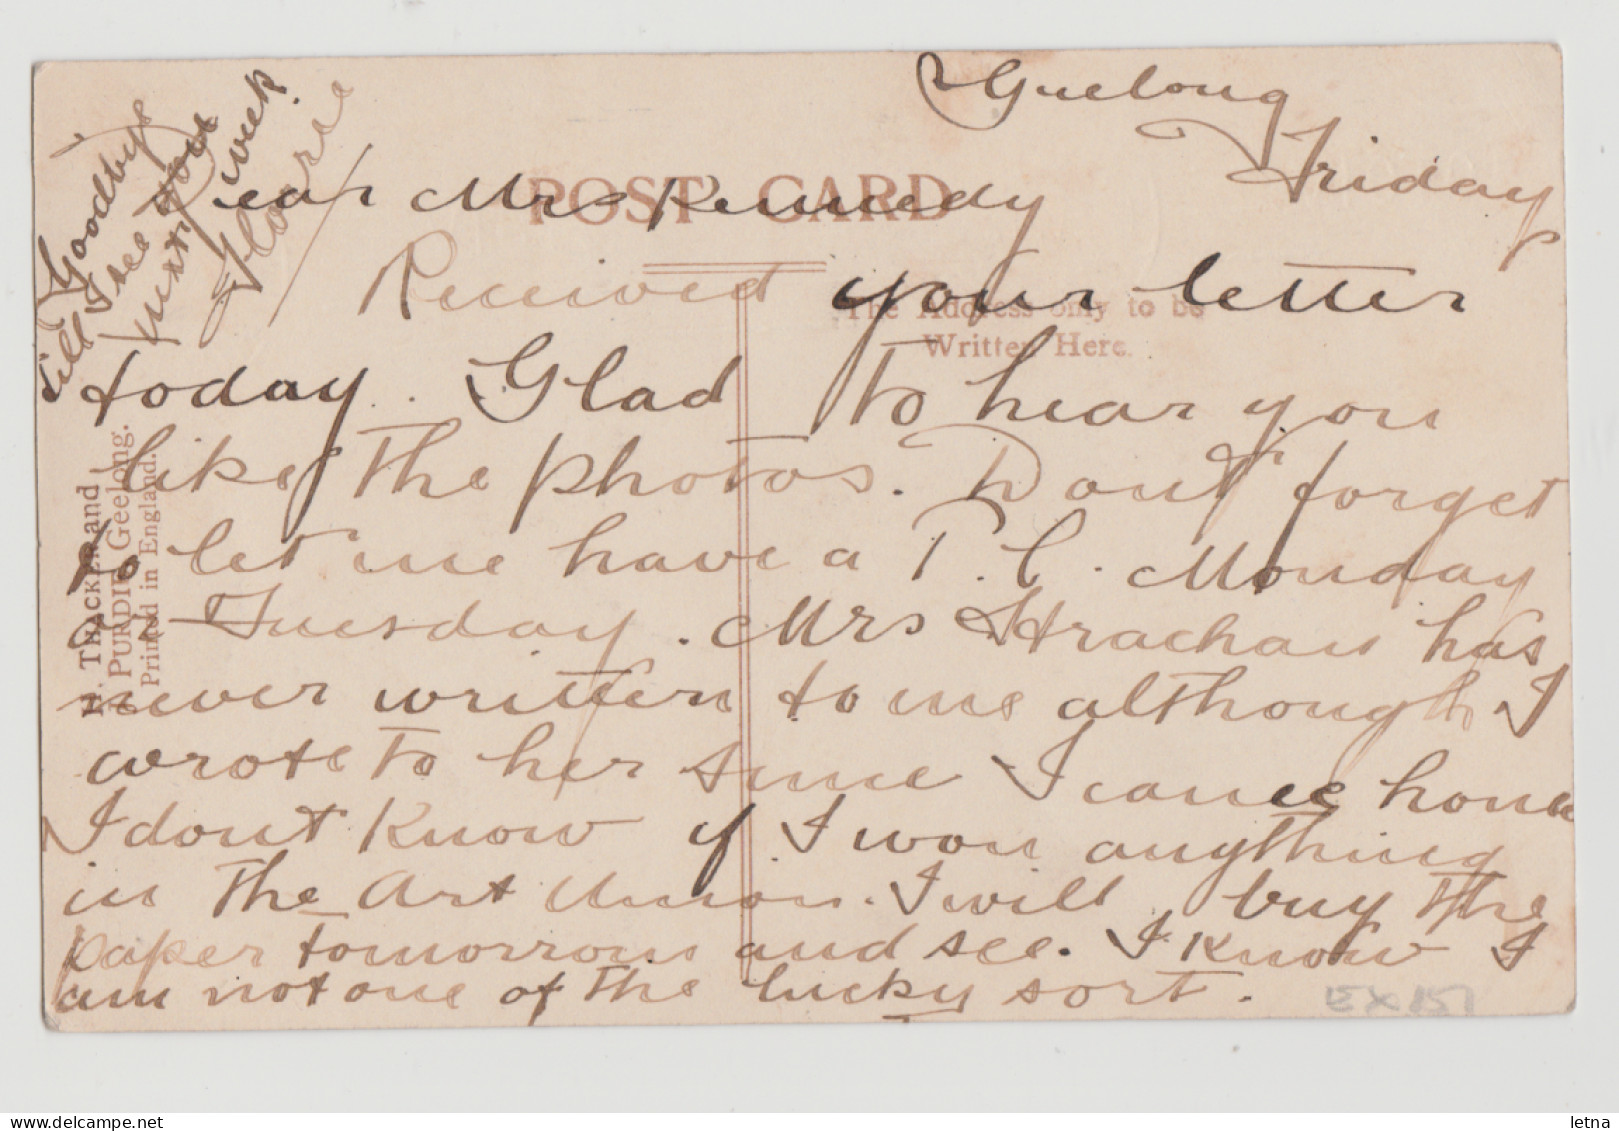 Geelong
Friday
Dear Mrs Kennedy
Received your letter
today. Glad to hear you
like the photos. Dont forget
to let me have a P.C. Monday
or Tuesday. Mrs Strachan has
never written to me although I
wrote to her since I came home
I dont know if I won anything
in the Art Union. I will buy the
paper tomorrow and see. I know I
am not one of the lucky sort.
Goodbye
till I see you
next week.
Florrie
POST CARD
The Address only to be
Written Here.
H. THACKER and
PURDIE Geelong.
Printed in England.
EX 157
delcampe.net
letna